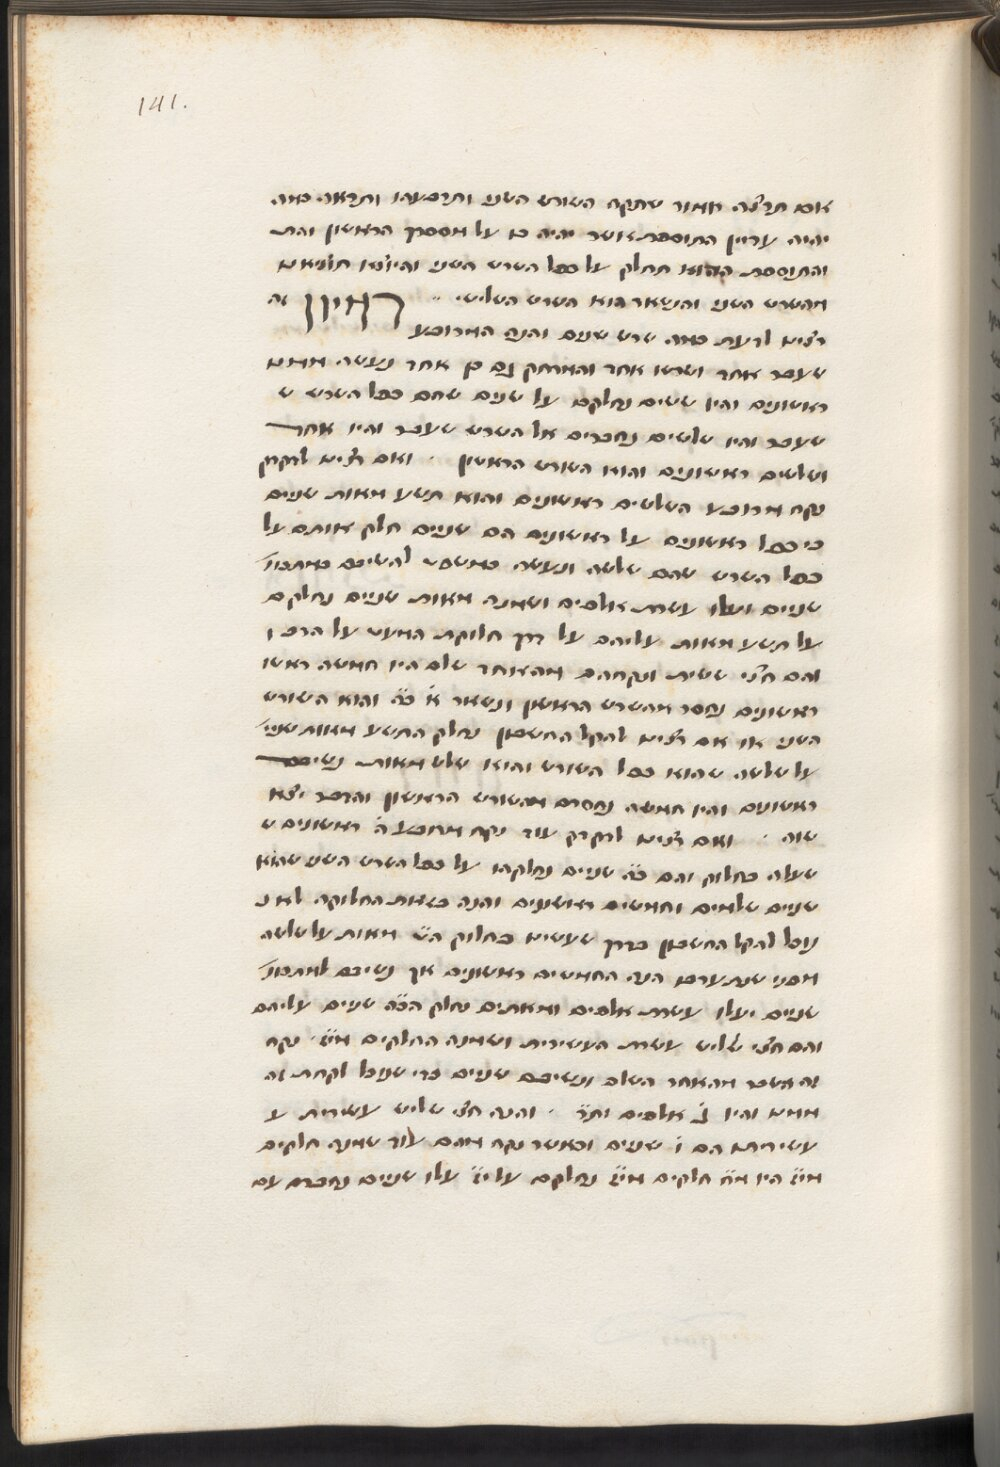 141.
אם תרצה חסור שתקח השורש השני ותרבענו ותראה כמה
יהיה עדיין התוספת אשר יהיה בו על מספרך הראשון והת
והתוספת ההוא תחלק על כפל השרש השני והיוצא תוציאם
מהשרש השני והנשאר הוא השרש השלישי דמיון זה
רצינו לדעת כמה שרש שנים והנה המרובע
שעבר אחד ושרשו אחד והמרחק גם כן אחד נעשה ממנו
ראשונים והיו ששים נחלקם על שנים שהם כפל השרש ש
שעבר והיו שלשים נחברים אל השרש שעבר והיו אחד
ושלשים ראשונים והוא השורש הראשון ואם רצינו לדקדק
נקח מרובע השלשים ראשונים והוא תשע מאות שניים
כי כפל ראשונים על ראשונים הם שניים חלק אותם על
כפל השרש שהם שלשה ונעשה כמשפט להשיבם כמתכונ
שניים ועלו עשרת אלפים ושמנה מאות שניים נחלקם
על תשע מאות עליהם על דרך חלוקת המעט על הרב ו
והם חצי ששית ונקחהם מהאחד שלם היו חמשה ראשו
ראשונים נחסר מהשרש הראשון ונשאר א׳ כ״ה והוא השורש
השני או אם רצינו להקל החשבון נחלק התשע מאות שניי
על שלשה שהוא כפל השורש והיו שלש מאות נשיבם
ראשונים והיו חמשה נחסרם מהשורש הראשון והדבר יצא
שוה ואם רצינו לדקדק עוד נקח מרובע ה׳ ראשונים ש
שעלה בחלוק והם כ״ה שניים נחלקהו על כפל השרש השני שהוא
שניים שלמים וחמשים ראשונים והנה בזאת החלוקה לא נ
נוכל להקל החשבון כדרך שעשינו בחלוק הט׳ מאות על שלשה
מפני שנתערבו הנה החמשים ראשונים אך נשיבם למתכונ
שניים יעלו עשרת אלפים ומאתים נחלק הכ״ה שניים עליהם
והם חצי שליש עשרת העשירית ושמנה החלקים מי״ז נקח
זה השבר מהאחד השלם ונשיבם שניים כדי שנוכל לקחת זה
ממנו והיו ג׳ אלפים ות״ר והנה חצי שליש עשרית ע
עשיריתם הם ו׳ שניים וכאשר נקח מהם עוד שמנה חלקים
מי״ז היו מ״ח חלקים מי״ז נחלקם על י״ז עלו שניים נחברם עם